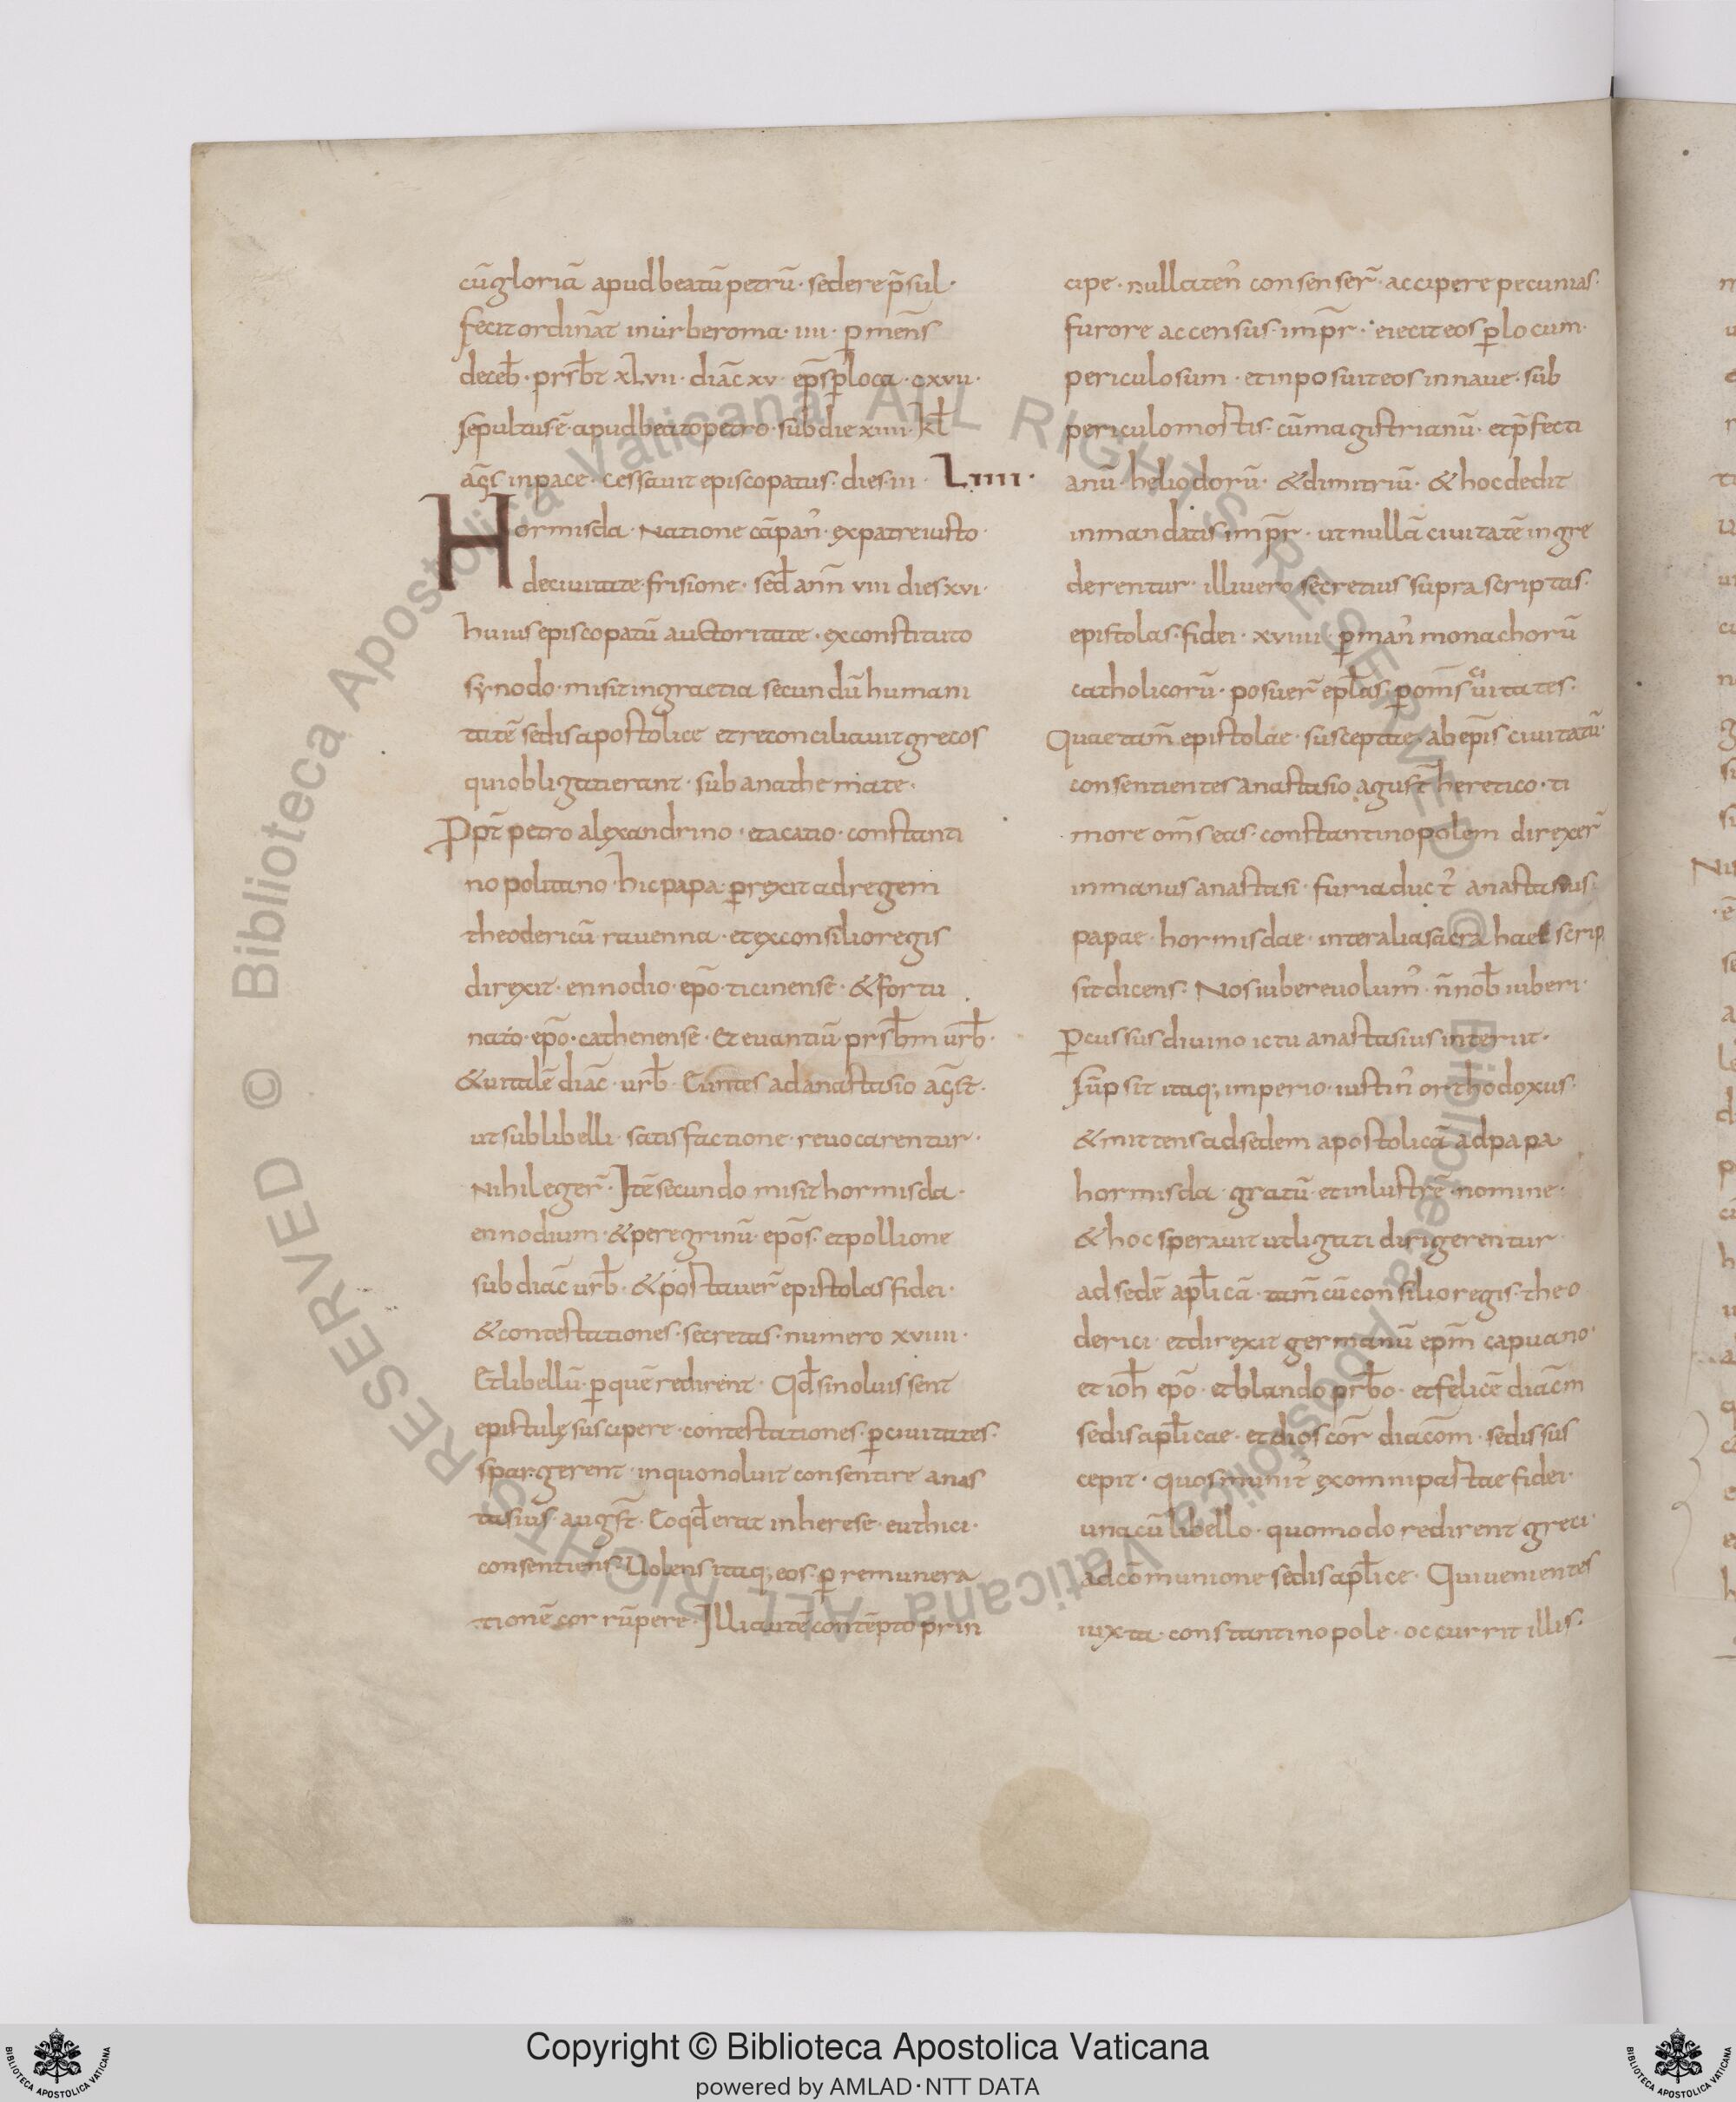 cū gloriā apud beatū petrū · sedere p̄sul ·
fecit ordināt in urbe roma · iiii · ꝑ mens̄
deceb̄ · prsb̄t xLvii · diāc xv · ep̄s ꝑ loca · cxvii ·
sepultus · ē · apud beato petro · sub die xiiii · kl̄
āgs in pace · cessavit episcopatus · dies · iii · Liiii ·
Hormisda · Natione cāpan᾽ · ex patre iusto ·
de civitate frisione · sed̄ ann̄ viii dies xvi ·
huius episcopatū auctoritate · ex constituto
synodo · misit in graetia secundū humani
tatē sedis apostolice et reconciliavit grecos
qui obligati erant · sub anathemate ·
Ppt̄ petro alexandrino · et acatio · constanti
nopolitano · hic papa ꝑrexit ad regem
theodericū ravenna · et ex consilio regis
direxit · ennodio · ep̄o · ticinense · & fortu
nato · ep̄o · cathenense · Et evantiū · prsb̄m urb̄ ·
& vitalē diāc · urb̄ · Euntes ad anastasio āgst ·
ut sub libelli · satisfactione · revocarentur ·
Nihil eger̄ · Itē secundo misit hormisda ·
ennodium · & peregrinū · ep̄os · et pollione
sub diāc urb̄ · & postaver̄ epistolas fidei ·
& contestationes · secretas · numero xviiii ·
Et libellū · ꝑ quē redirent · Qd̄ si noluissent
epistulę suscipere · contestationes · ꝑ civitates ·
spargerent · in quo noluit consentire anas
tasius · augst̄ · Eo qd̄ erat in herese · euthici ·
consentiens · Volens itaq; eos · ꝑ remunera
tionē corrūpere · Illi autē contēpto prin
cipe · nullaten᾽ consenser̄ · accipere pecunias ·
furore accensus · imp̄r · eiecit eos ꝑ locum ·
periculosum · et inposuit eos in nave · sub
periculo mortis · cū magistrianū · et p̄fecti
anū · heliodorū · & dimitriū · & hoc dedit
in mandatis imp̄r · ut nullā civitatē ingre
derentur · illi vero secretius supra scriptas ·
epistolas · fidei · xviiii · ꝑ man᾽ monachorū
catholicorū · posuer̄ epl̄as · ꝑ om̄s civitates ·
Quae tam̄ epistolae · susceptae · ab ep̄is civitatū ·
consentientes anastasio agust̄ heretico · ti
more om̄s eas · constantinopolem direxer̄
in manus anastasi · furia duct᾽ anastasius ·
papae · hormisdae · inter alia sacra haec scrip
sit dicens · Nos iubere volum᾽ · n̄ nob̄ iuberi ·
Ꝑcussus divino ictu anastasius interiit ·
Sūpsit itaq; imperio · iustin᾽ orthodoxus ·
& mittens ad sedem apostolicā ad papa
hormisda · gratū · et inlustrē · nomine ·
& hoc speravit ut ligati dirigerentur
ad sedē apl̄icā · tam̄ cū consilio regis · theo
derici · et direxit germanū ep̄m capuano ·
et ioh̄ ep̄o · et blando prb̄o · et felicē diāc̄m
sedis apl̄icae · et dioscor̄ diacōm · sedis sus
cepit · quos munit᾽ ex omni pastae fidei ·
una cū libello · quomodo redirent greci ·
ad cōmunione sedis apl̄ice · Qui venientes
iuxta · constantinopole · occurrit illis ·
Copyright © Biblioteca Apostolica Vaticana
powered by AMLAD·NTT DATA